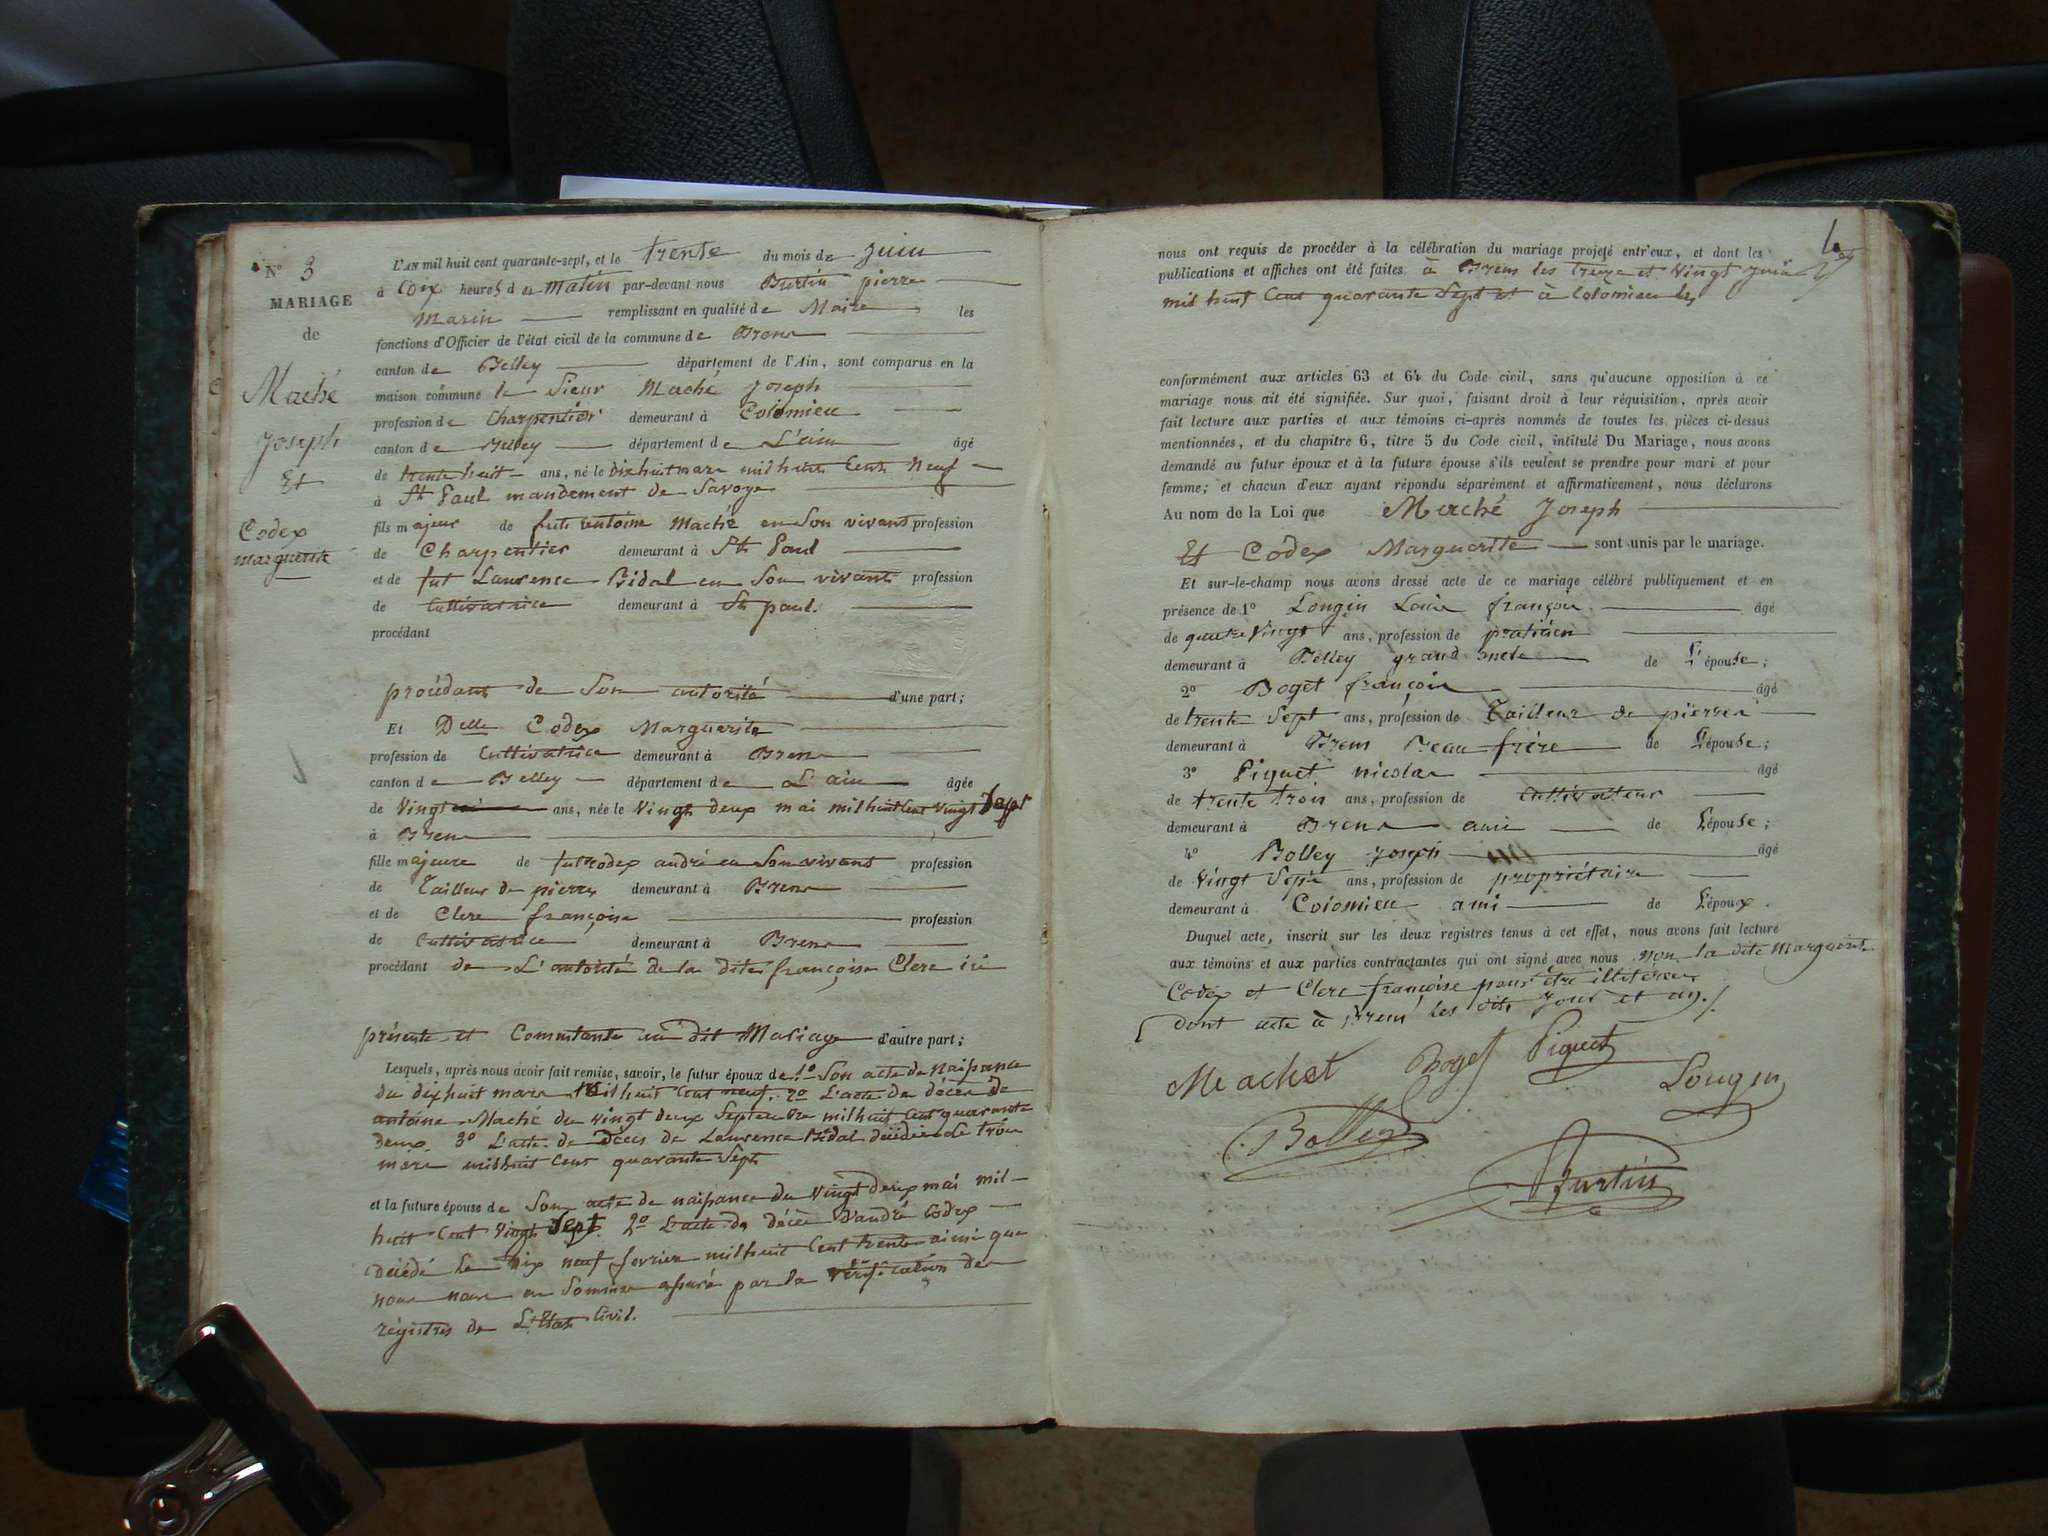 N° 3
MARIAGE
de
Maché
Joseph
Et
Codex
marguerite
L'AN mil huit cent quarante-sept, et le trente du mois de juin
à Dix heures du Matin par-devant nous Burtin pierre
Marin remplissant en qualité de Maire les
fonctions d'Officier de l'état civil de la commune de Brens
canton de Belley département de l'Ain, sont comparus en la
maison commune le Sieur Maché Joseph
profession de Charpentier demeurant à Colomieu
canton de Belley département de L'ain âgé
de trente huit ans, né le dixhuit mars mil huit Cent Neuf
à St Paul mandement de Savoye
fils majeur de fut antoine Maché en Son vivant profession
de Charpentier demeurant à St Paul
et de fut Laurence Bidal en Son vivant profession
de Cultivatrice demeurant à St paul.
procédant
procédant de Son autorité d'une part;
Et Delle Codex Marguerite
profession de Cultivatrice demeurant à Brens
canton de Belley département de L'ain âgée
de Vingt ans, née le Vingt deux mai mil huit Cent vingt Sept
à Brens
fille majeure de fut Codex andré en Son vivant profession
de Tailleur de pierres demeurant à Brens
et de Clerc françoise profession
de Cultivatrice demeurant à Brens
procédant de L'autorité de la dite françoise Clerc ici
présente et Consentante au dit Mariage d'autre part;
Lesquels, après nous avoir fait remise, savoir, le futur époux de 1° Son acte de Naissance
du dixhuit mars mil huit Cent neuf. 2° L'acte de décès de
antoine Maché du vingt deux Septembre mil huit Cent quarante
deux 3° L'acte de décès de Laurence Bidal décédée le trois
mars mil huit Cent quarante Sept
et la future épouse de Son acte de naissance du vingt deux mai mil
huit Cent vingt Sept. 2° L'acte de décès d'andré Codex
décédé le dix neuf fevrier mil huit Cent trente ainsi que
nous nous en Sommes assuré par la vérification des
régistres de L'Etat Civil.
nous ont requis de procéder à la célébration du mariage projeté entr'eux, et dont les
publications et affiches ont été faites à Brens les treize et Vingt juin
mil huit Cent quarante Sept et à Colomieu les
conformément aux articles 63 et 64 du Code civil, sans qu'aucune opposition à ce
mariage nous ait été signifiée. Sur quoi, faisant droit à leur réquisition, après avoir
fait lecture aux parties et aux témoins ci-après nommés de toutes les pièces ci-dessus
mentionnées, et du chapitre 6, titre 5 du Code civil, intitulé Du Mariage, nous avons
demandé au futur époux et à la future épouse s'ils veulent se prendre pour mari et pour
femme; et chacun d'eux ayant répondu séparément et affirmativement, nous déclarons
Au nom de la Loi que Maché Joseph
Et Codex Marguerite sont unis par le mariage.
Et sur-le-champ nous avons dressé acte de ce mariage célébré publiquement et en
présence de 1° Longin Louis françois âgé
de quatre Vingt ans, profession de praticien
demeurant à Belley grand oncle de L'épouse;
2° Boget françois âgé
de trente Sept ans, profession de Tailleur de pierres
demeurant à Brens Beau frère de L'épouse;
3° Piquet nicolas âgé
de trente trois ans, profession de Cultivateur
demeurant à Brens ami de L'épouse;
4° Bolley joseph âgé
de Vingt Sept ans, profession de propriétaire
demeurant à Colomieu ami de L'époux.
Duquel acte, inscrit sur les deux registres tenus à cet effet, nous avons fait lecture
aux témoins et aux parties contractantes qui ont signé avec nous non la dite Marguerite
Codex et Clerc françoise pour être illiterées
dont acte à Brens les dits jour et an.
Machet Boget Piquet
Longin
Bolley
Burtin